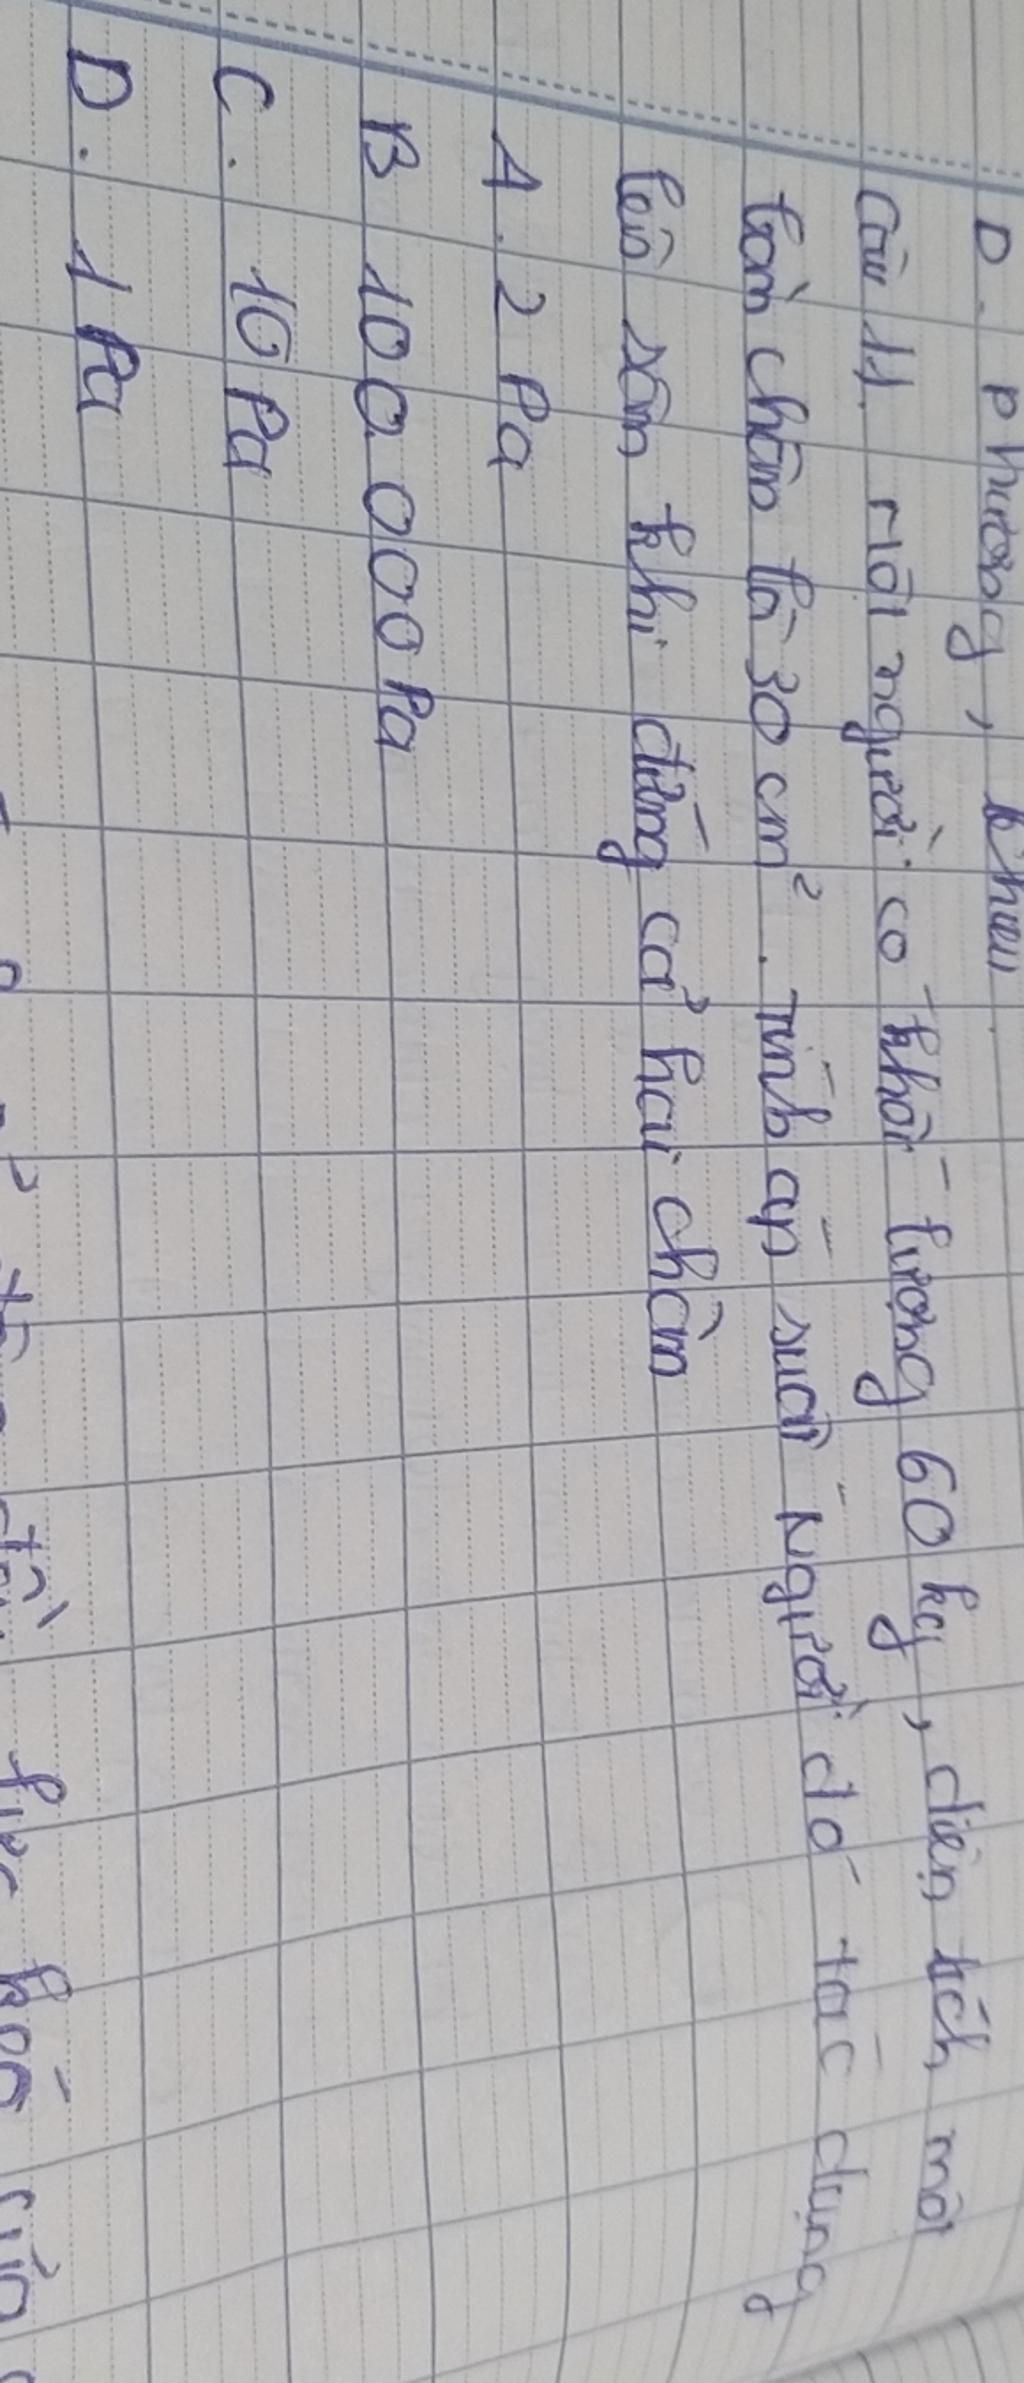 D. Phương, chiều
Câu 11. Một người có khối lượng 60 kg, diện tích một
bàn chân là 30 cm². Tính áp suất người đó tác dụng
lên sàn khi đứng cả hai chân
A. 2 Pa
B 100.000 Pa
C. 10 Pa
D. 1 Pa